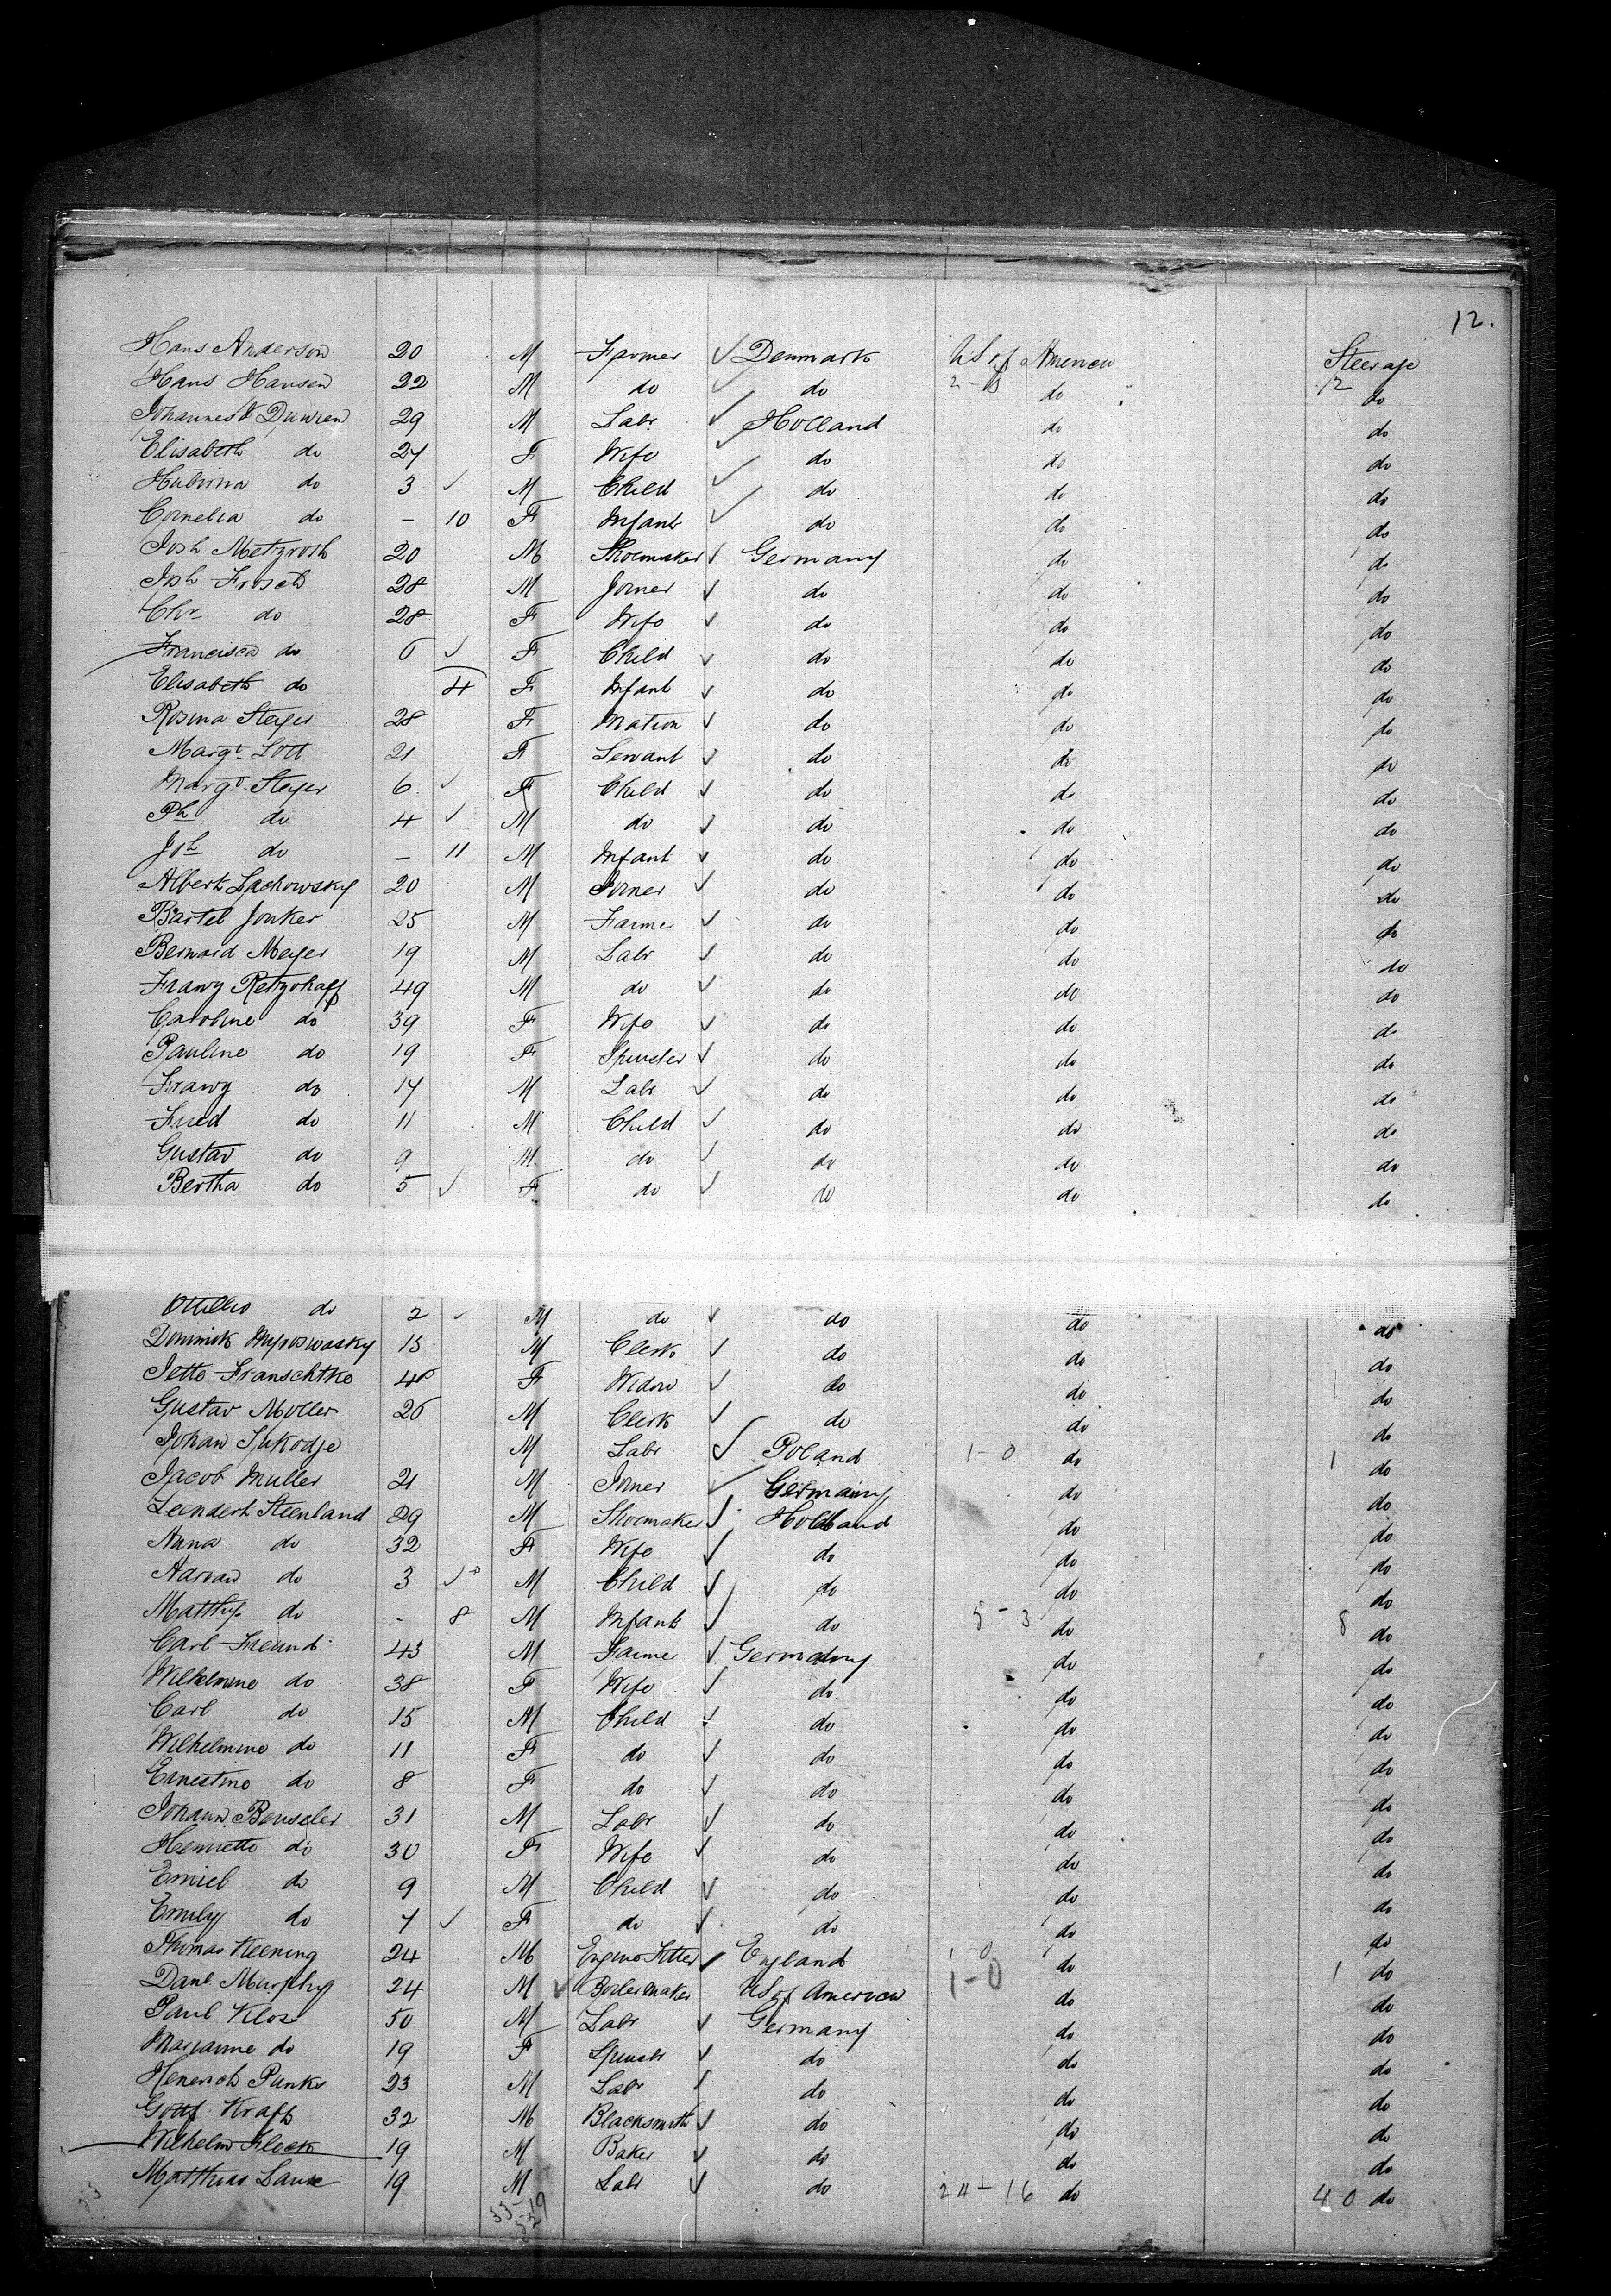 12.
Hans Anderson 20 M Farmer ✓ Denmark US of America Steerage
Hans Hansen 22 M do ✓ do 2-0 do 2 do
Johannes V Duuren 29 M Labr ✓ Holland do do
Elisabeth do 27 F Wife ✓ do do do
Hubrina do 3 ✓ M Child ✓ do do do
Cornelia do - 10 F Infant ✓ do do do
Josh Metzroth 20 M Shoemaker ✓ Germany do do
Josh Frisch 28 M Joiner ✓ do do do
Chr do 28 F Wife ✓ do do do
Francisca do 6 ✓ F Child ✓ do do do
Elisabeth do 4 F Infant ✓ do do do
Rosina Steyer 28 F Matron ✓ do do do
Margt Lott 21 F Servant ✓ do do do
Margt Steyer 6 ✓ F Child ✓ do do do
Ph do 4 ✓ M do ✓ do do do
Joh do - 11 M Infant ✓ do do do
Albert Lachowsky 20 M Joiner ✓ do do do
Bartel Jonker 25 M Farmer ✓ do do do
Bernard Meyer 19 M Labr ✓ do do do
Franz Retzohaff 49 M do ✓ do do do
Caroline do 39 F Wife ✓ do do do
Pauline do 19 F Spinster ✓ do do do
Franz do 14 M Labr ✓ do do do
Fried do 11 M Child ✓ do do do
Gustav do 9 M do ✓ do do do
Bertha do 5 ✓ F do ✓ do do do
Ottilio do 2 ✓ M do ✓ do do do
Dominick M Clerk ✓ do do do
Jette Franschtke F Widow ✓ do do do
Gustav Moller 26 M Clerk ✓ do do do
Johan M Labr ✓ Poland 1-0 do 1 do
Jacob Muller 21 M Joiner ✓ Germany do do
Leendert Steenland 29 M Shoemaker ✓ Holland do do
Anna do 32 F Wife ✓ do do do
Adrian do 3 ✓ M Child ✓ do do do
Matthys do - 8 M Infant ✓ do 5-3 do 8 do
Carl Freund 43 M Farmer ✓ Germany do do
Wilhelmine do 38 F Wife ✓ do do do
Carl do 15 M Child ✓ do do do
Wilhelmine do 11 F do ✓ do do do
Ernestine do 8 F do ✓ do do do
Johann Benseler 31 M Labr ✓ do do do
Henriette do 30 F Wife ✓ do do do
Emiel do 9 M Child ✓ do do do
Emily do 7 ✓ F do ✓ do do do
Thomas Keening 24 M Engine Fitter ✓ England 1-0 do 1 do
Danl Murphy 24 M ✓ Boilermaker US of America 1-0 do do
Paul Klos 50 M Labr ✓ Germany do do
Marianne do 19 F Spinstr ✓ do do do
Henerich Punks 23 M Labr ✓ do do do
Gottf Kraft 32 M Blacksmith ✓ do do do
Wilhelm Klock 19 M Baker ✓ do do do
Matthias Laux 19 M Labr ✓ do 24-16 do 40 do